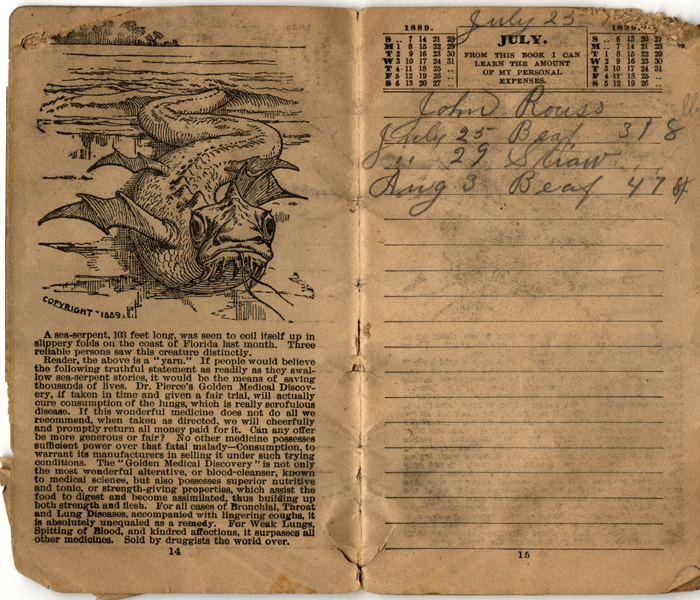 COPYRIGHT - 1889.
A sea-serpent, 103 feet long, was seen to coil itself up in
slippery folds on the coast of Florida last month. Three
reliable persons saw this creature distinctly.
Reader, the above is a "yarn." If people would believe
the following truthful statement as readily as they swal-
low sea-serpent stories, it would be the means of saving
thousands of lives. Dr. Pierce's Golden Medical Discov-
ery, if taken in time and given a fair trial, will actually
cure consumption of the lungs, which is really scrofulous
disease. If this wonderful medicine does not do all we
recommend, when taken as directed, we will cheerfully
and promptly return all money paid for it. Can any offer
be more generous or fair? No other medicine possesses
sufficient power over that fatal malady—Consumption, to
warrant its manufacturers in selling it under such trying
conditions. The "Golden Medical Discovery" is not only
the most wonderful alterative, or blood-cleanser, known
to medical science, but also possesses superior nutritive
and tonic, or strength-giving properties, which assist the
food to digest and become assimilated, thus building up
both strength and flesh. For all cases of Bronchial, Throat
and Lung Diseases, accompanied with lingering coughs, it
is absolutely unequaled as a remedy. For Weak Lungs,
Spitting of Blood, and kindred affections, it surpasses all
other medicines. Sold by druggists the world over.
14
July 25
1889.
S .. 7 14 21 28
M 1 8 15 22 29
T 2 9 16 23 30
W 3 10 17 24 31
T 4 11 18 25 ..
F 5 12 19 26 ..
S 6 13 20 27 ..
JULY.
FROM THIS BOOK I CAN
LEARN THE AMOUNT
OF MY PERSONAL
EXPENSES.
1890.
S .. 6 13 20 27
M .. 7 14 21 28
T 1 8 15 22 29
W 2 9 16 23 30
T 3 10 17 24 31
F 4 11 18 25 ..
S 5 12 19 26 ..
John Rouss
July 25 Beaf 318
" 29 Straw
Aug 3 Beaf 47
15